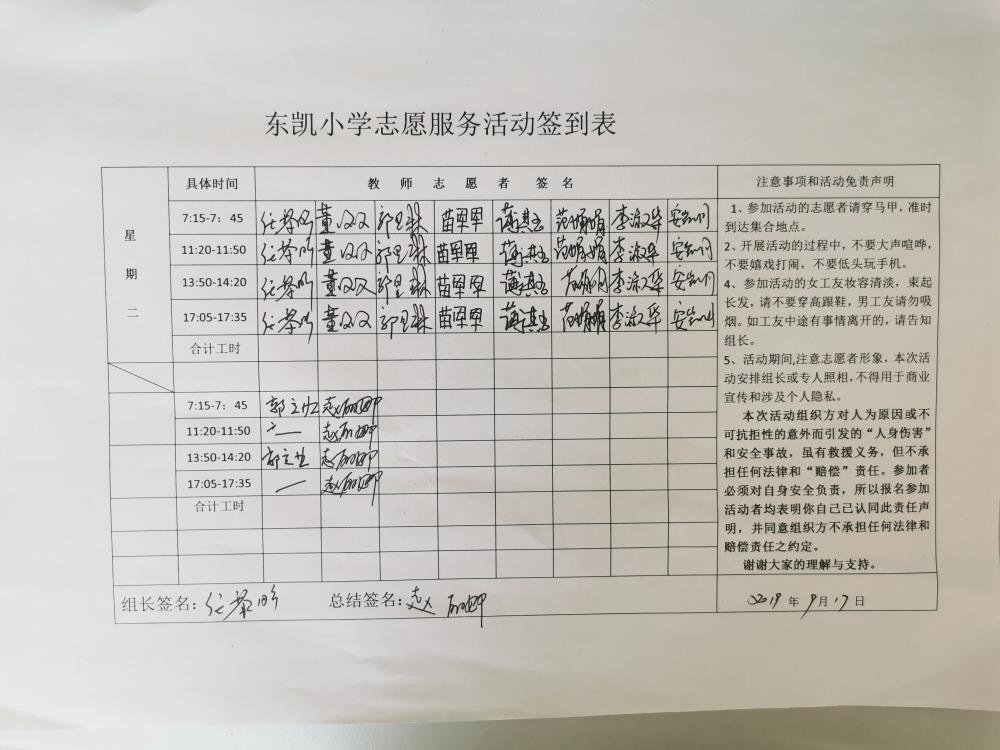 东凯小学志愿服务活动签到表
具体时间 教师志愿者签名 注意事项和活动免责声明
星期二
7:15-7：45 董双双 苗甲甲 李淑华
11:20-11:50 董双双 苗甲甲 李淑华
13:50-14:20 董双双 苗甲甲 李淑华
17:05-17:35 董双双 苗甲甲 李淑华
合计工时
7:15-7：45
11:20-11:50
13:50-14:20
17:05-17:35
合计工时
1、参加活动的志愿者请穿马甲，准时
到达集合地点。
2、开展活动的过程中，不要大声喧哗，
不要嬉戏打闹，不要低头玩手机。
4、参加活动的女工友妆容清淡，束起
长发，请不要穿高跟鞋，男工友请勿吸
烟。如工友中途有事情离开的，请告知
组长。
5、活动期间,注意志愿者形象，本次活
动安排组长或专人照相,不得用于商业
宣传和涉及个人隐私。
本次活动组织方对人为原因或不
可抗拒性的意外而引发的“人身伤害”
和安全事故，虽有救援义务，但不承
担任何法律和“赔偿”责任。参加者
必须对自身安全负责，所以报名参加
活动者均表明你自己已认同此责任声
明，并同意组织方不承担任何法律和
赔偿责任之约定。
谢谢大家的理解与支持。
组长签名： 总结签名： 2019年9月17日